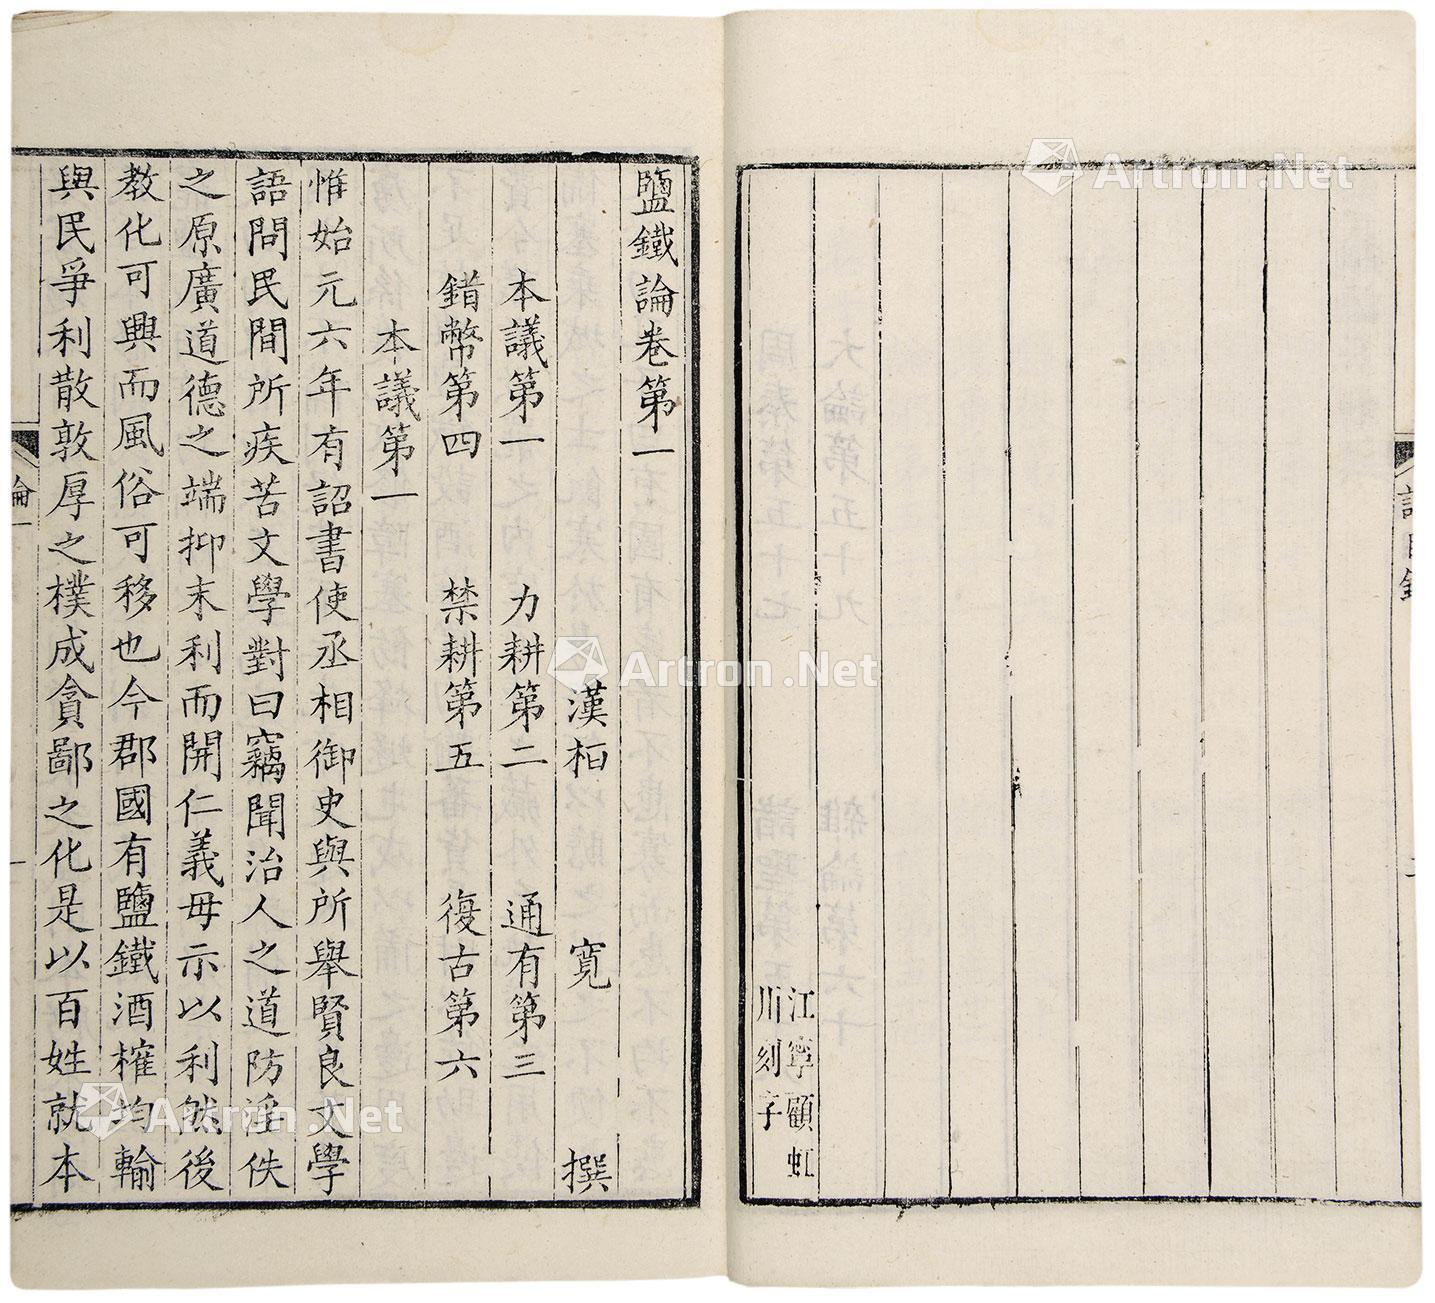 江寧顧虹
川刻字
鹽鐵論卷第一
漢桓寬撰
本議第一 力耕第二 通有第三
錯幣第四 禁耕第五 復古第六
本議第一
惟始元六年有詔書使丞相御史與所舉賢良文學
語問民間所疾苦文學對曰竊聞治人之道防淫佚
之原廣道德之端抑末利而開仁義毋示以利然後
教化可興而風俗可移也今郡國有鹽鐵酒榷均輸
與民爭利散敦厚之樸成貪鄙之化是以百姓就本
論一
一
Artron.Net
Artron.Net
Artron.Net